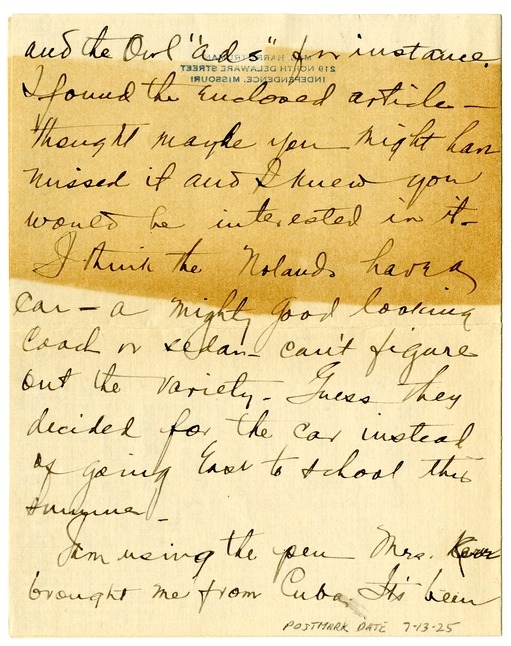 and the Owl "ads" for instance.
MRS. HARRY TRUMAN
219 NORTH DELAWARE STREET
INDEPENDENCE, MISSOURI
I found the enclosed article –
thought maybe you might have
missed it and I knew you
would be interested in it –
I think the Nolands have a
car – a mighty good looking
coach or sedan – can't figure
out the variety – Guess they
decided for the car instead
of going East to school this
summer –
I am using the pen Mrs.
brought me from Cuba. It's been
POSTMARK DATE 7-13-25